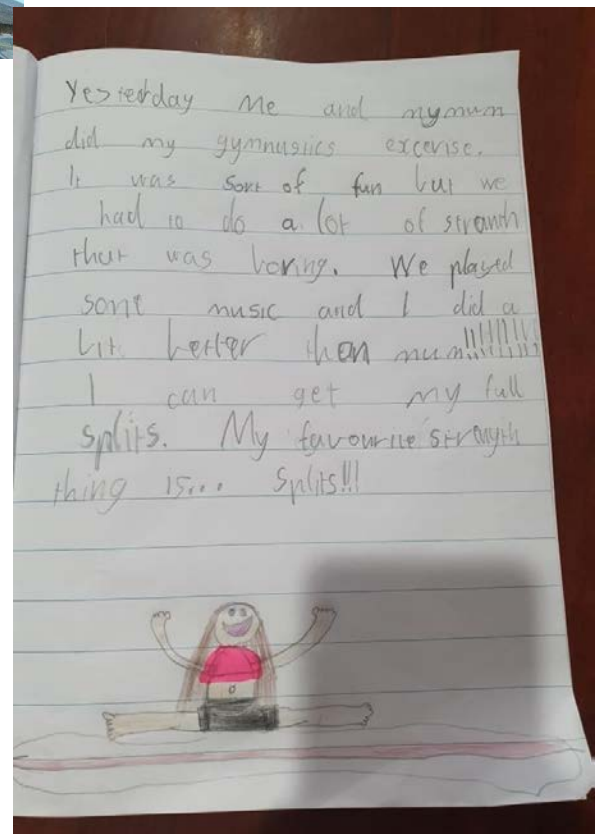 Yesterday Me and my mum
did my gymnusiics excerise.
It was sort of fun but we
had to do a lot of stranth
that was boring. We played
some music and I did a
bit better than mum!!!!!!!!!!
I can get my full
splits. My favourite strength
thing is... splits!!!